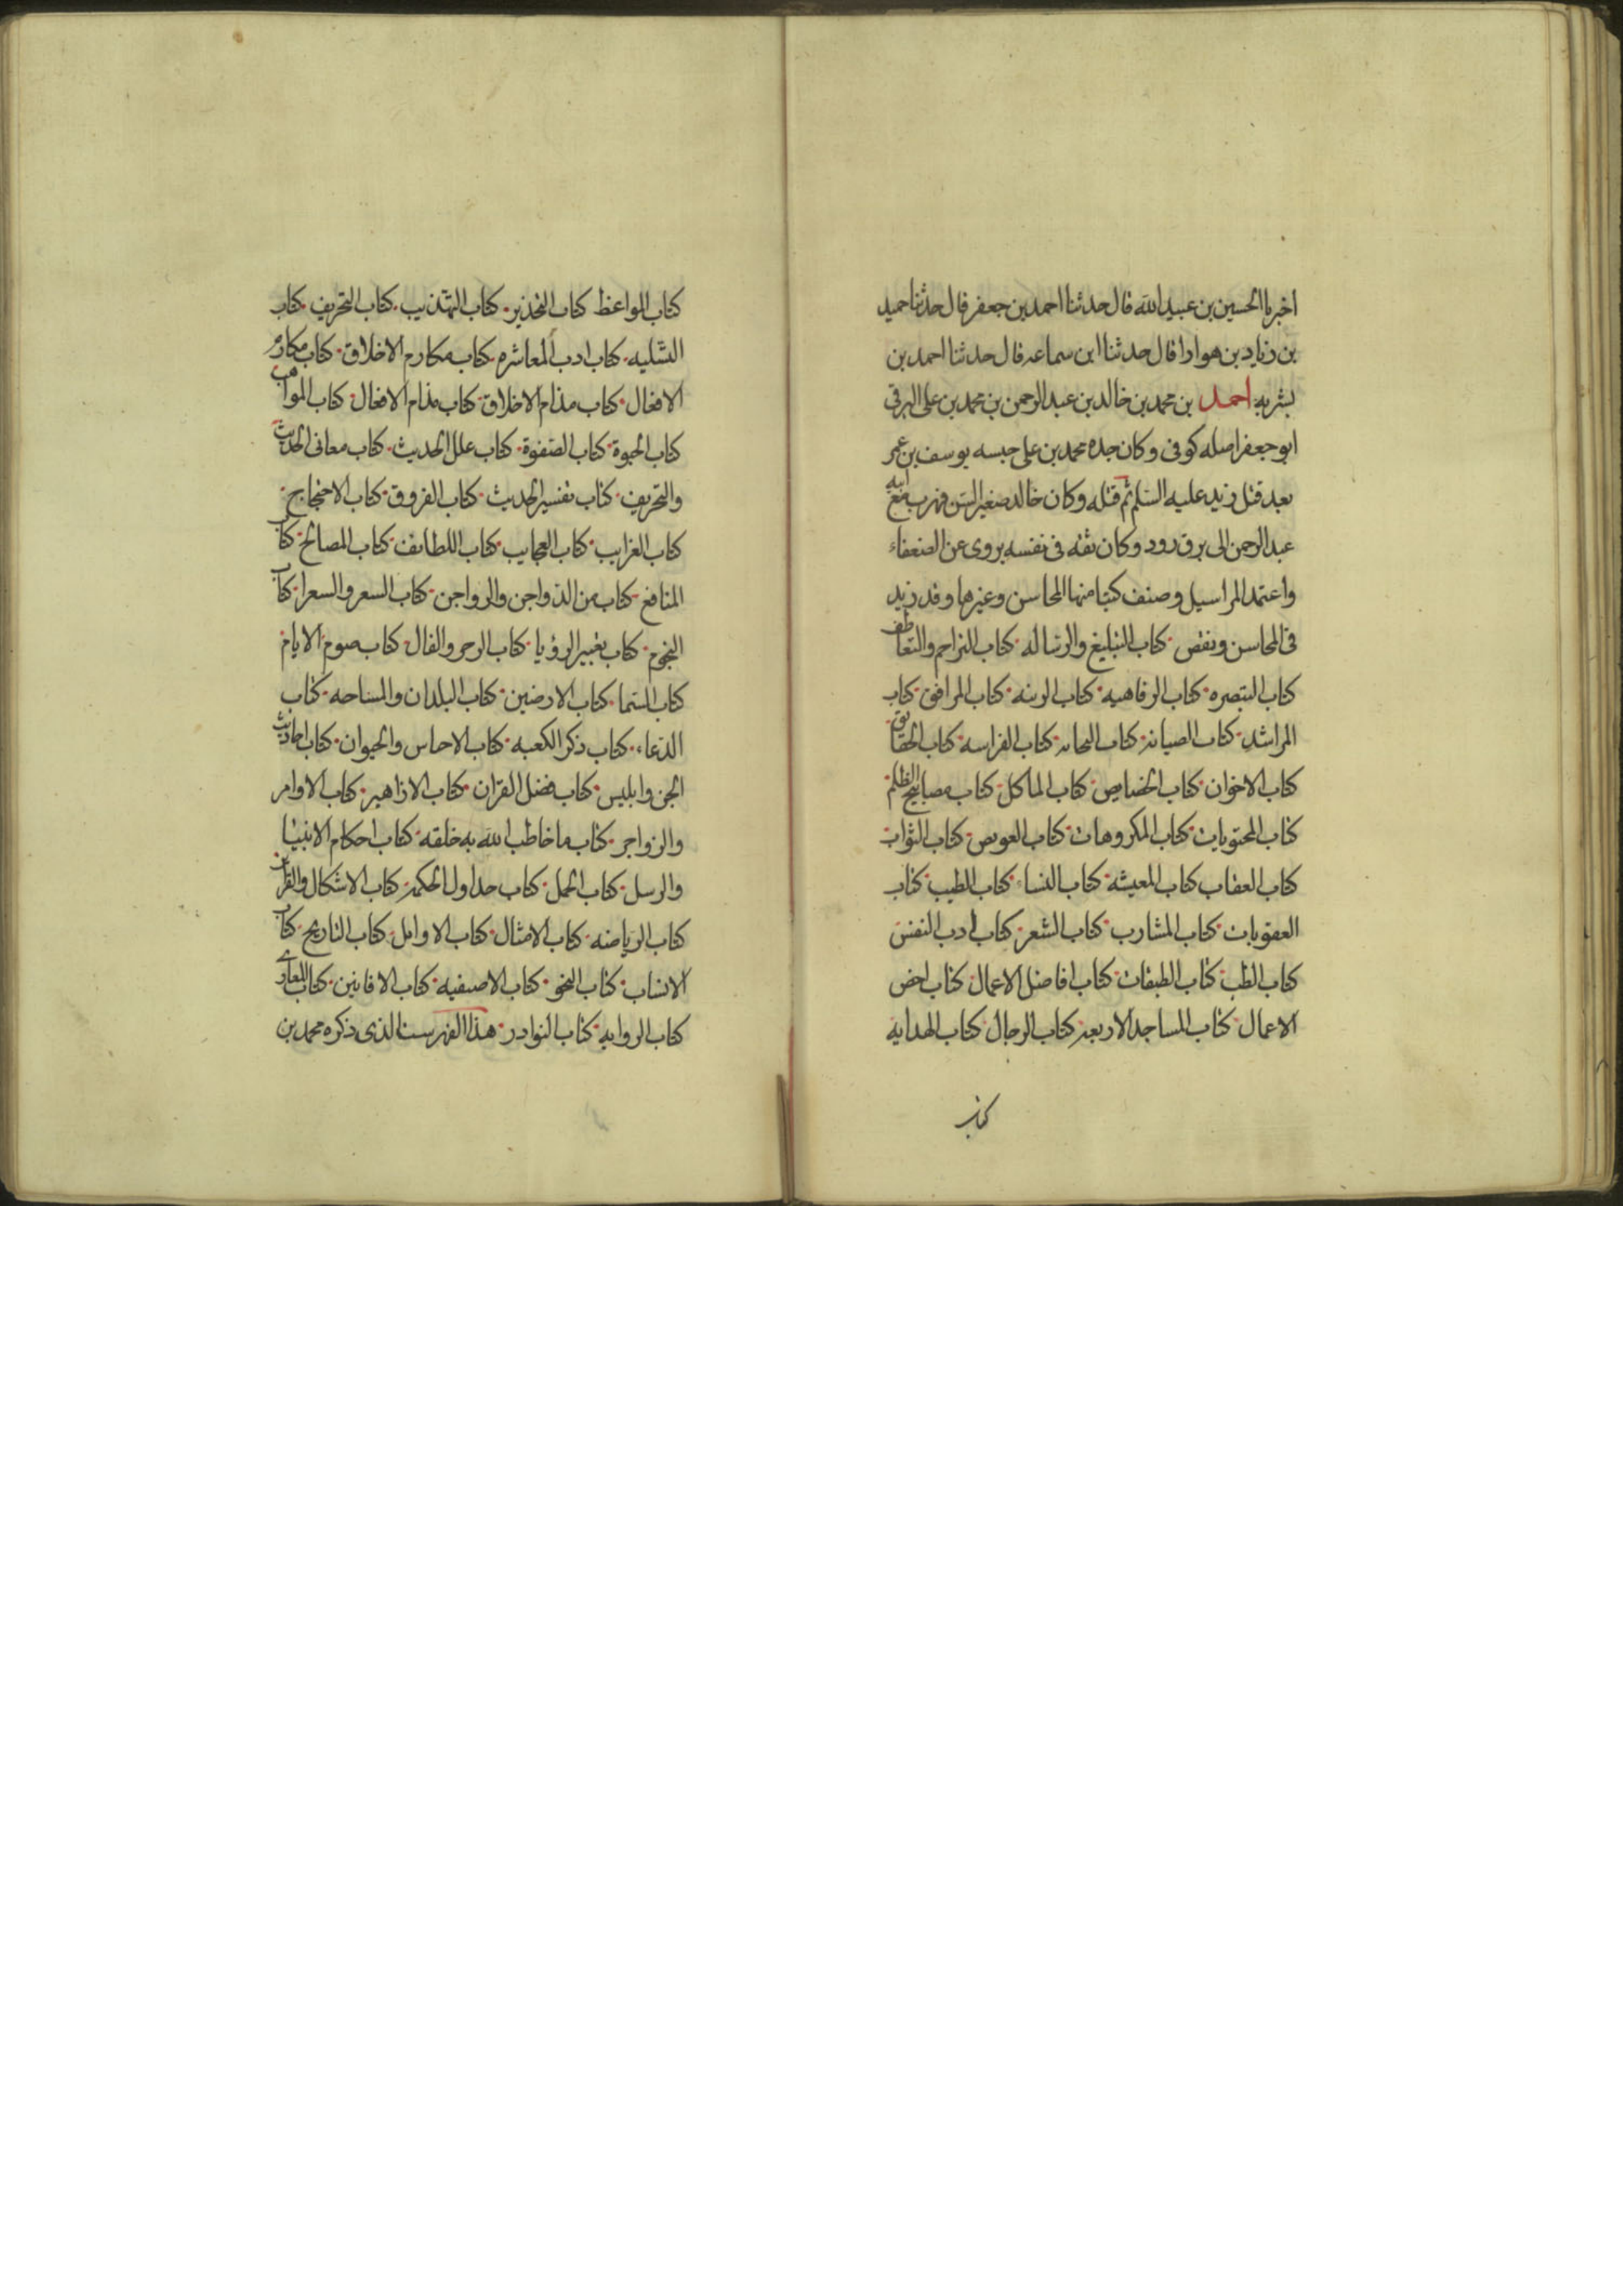 اخبرنا الحسين بن عبيد الله قال حدثنا احمد بن جعفر قال حدثنا حميد
بن زياد بن هوارا قال حدثنا ابن سماعه قال حدثنا احمد بن
بشر به احمد بن محمد بن خالد بن عبد الرحمن بن محمد بن على البرقى
ابو جعفر اصله كوفى وكان جده محمد بن على حبسه يوسف بن عمر
بعد قتل زيد عليه السلم ثم قتله وكان خالد صغير السن فهرب مع ابيه
عبد الرحمن الى برق رود وكان ثقه فى نفسه يروى عن الضعفاء
واعتمد المراسيل وصنف كتبا منها المحاسن وغيرها وقد زيد
فى المحاسن ونقص كتاب التبليغ والرساله كتاب التراحم والتعاطف
كتاب التبصره كتاب الرفاهيه كتاب الزينه كتاب المرافق كتاب
المراشد كتاب الصيانه كتاب النجابه كتاب الفراسه كتاب الحقايق
كتاب الاخوان كتاب الخصايص كتاب الماكل كتاب مصابيح الظلم
كتاب المحبوبات كتاب المكروهات كتاب العويص كتاب الثواب
كتاب العقاب كتاب المعيشه كتاب النساء كتاب الطيب كتاب
العقوبات كتاب المشارب كتاب الشعر كتاب ادب النفس
كتاب الطب كتاب الطبقات كتاب افاضل الاعمال كتاب اخص
الاعمال كتاب المساجد الاربعه كتاب الرجال كتاب الهدايه
كتاب
كتاب المواعظ كتاب التحذير كتاب التهذيب كتاب التحريف كتاب
التسليه كتاب ادب المعاشره كتاب مكارم الاخلاق كتاب مكارم
الافعال كتاب مذام الاخلاق كتاب مذام الافعال كتاب المواهب
كتاب الحبوة كتاب الصفوة كتاب علل الحديث كتاب معانى الحديث
والتحريف كتاب تفسير الحديث كتاب الفروق كتاب الاحتجاج
كتاب الغرايب كتاب العجايب كتاب اللطايف كتاب المصالح كتاب
المنافع كتاب من الدواجن والرواجن كتاب السعر والسعرا كتاب
النجوم كتاب تعبير الرؤيا كتاب الزجر والفال كتاب صوم الايام
كتاب السما كتاب الارضين كتاب البلدان والمساحه كتاب
الدعاء كتاب ذكر الكعبه كتاب الاجناس والحيوان كتاب احاديث
الجن وابليس كتاب فضل القران كتاب الازاهير كتاب الاوامر
والزواجر كتاب ما خاطب الله به خلقه كتاب احكام الانبيا
والرسل كتاب الجمل كتاب جداول الحكمه كتاب الاشكال والقراين
كتاب الرياضه كتاب الامثال كتاب الاوايل كتاب التاريخ كتاب
الانساب كتاب النحو كتاب الاصفيه كتاب الافانين كتاب المغازى
كتاب الروايه كتاب النوادر هذا الفهرست الذى ذكره محمد بن